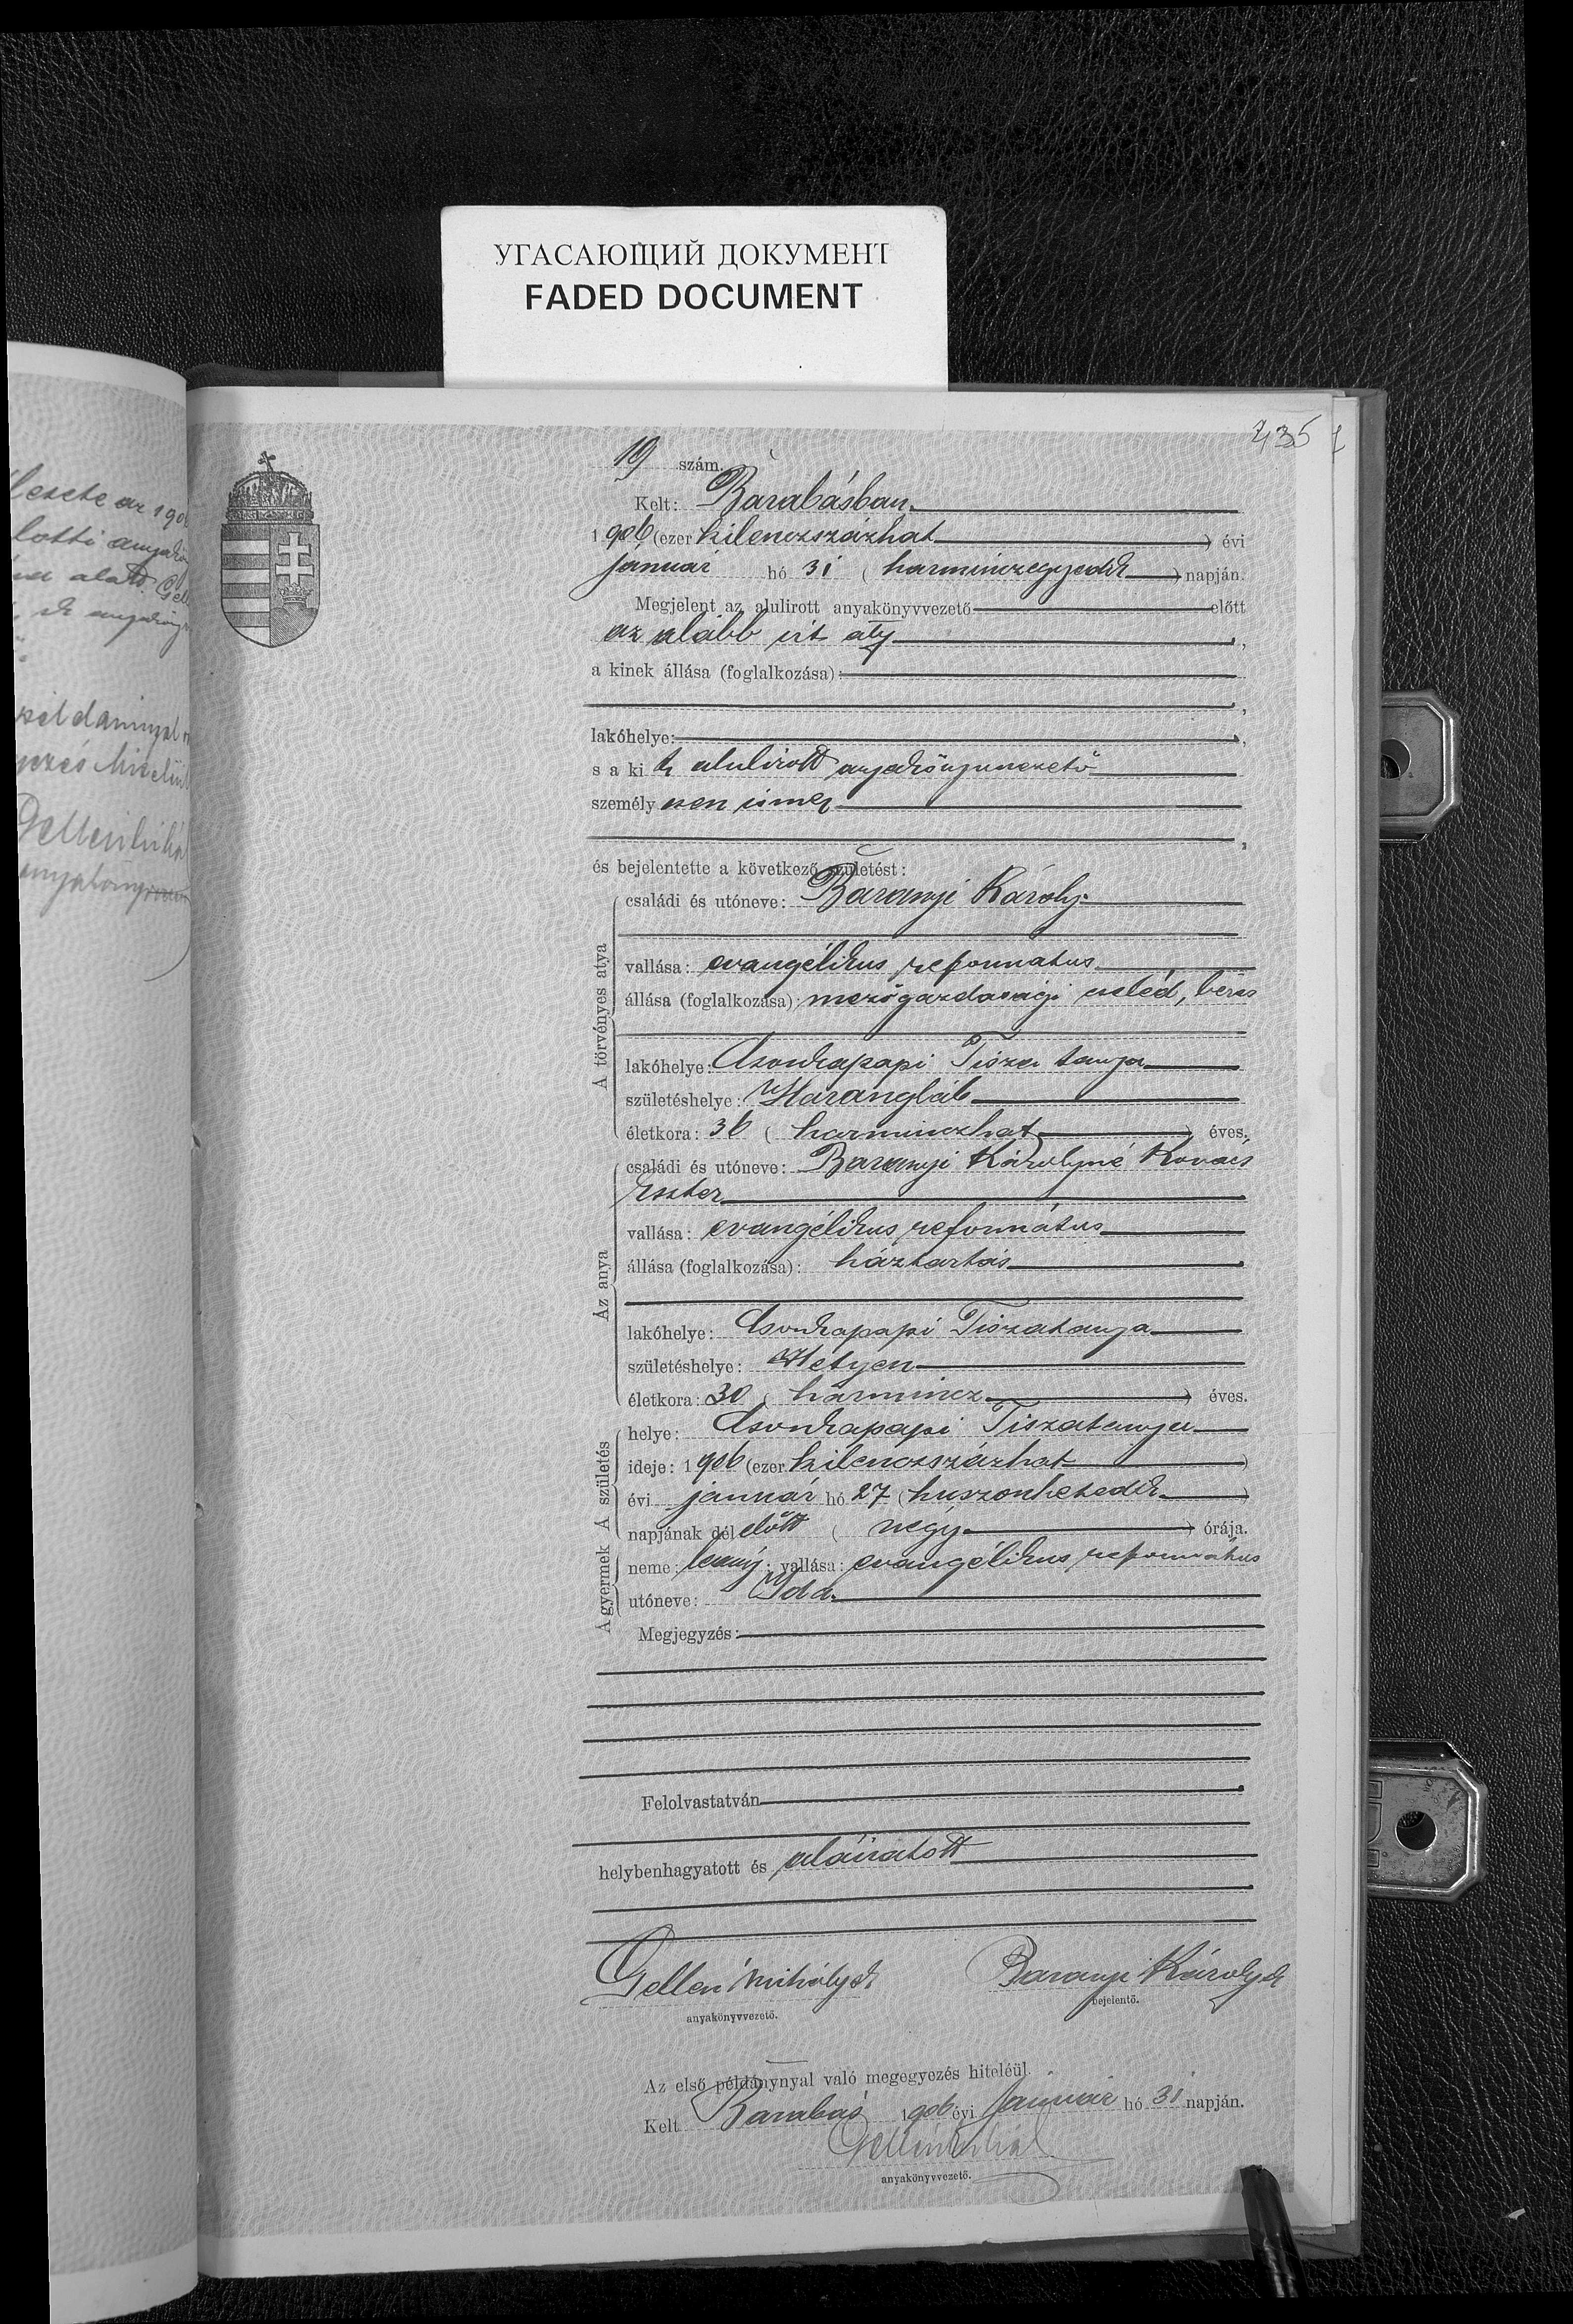 УГАСАЮЩИЙ ДОКУМЕНТ
FADED DOCUMENT
435
19 szám.
Kelt: Barabásban
1906 (ezer kilenczszázhat) évi
január hó 31 (harminczegyedik) napján.
Megjelent az alulirott anyakönyvvezető előtt
az alább irt aty,
a kinek állása (foglalkozása):
lakóhelye:
s a ki k alulirott anyakönyvvezető
személyesen ismer
és bejelentette a következő születést:
A törvényes atya
családi és utóneve: Baranyi Károly
vallása: evangélikus reformatus
állása (foglalkozása): mezőgazdasági cseléd, béres
lakóhelye: Csonkapapi Tisza tanya
születéshelye: Harangláb
életkora: 36 (harminczhat) éves.
Az anya
családi és utóneve: Baranyi Károlyné Kovács
Eszter
vallása: evangélikus református
állása (foglalkozása): háztartás
lakóhelye: Csonkapapi Tiszatanya
születéshelye: Hetyen
életkora: 30 (harmincz) éves.
A születés
helye: Csonkapapi Tiszatanya
ideje: 1906 (ezer kilenczszázhat)
évi január hó 27 (huszonhetedik)
napjának délelőtt (négy) órája.
A gyermek
neme: leány; vallása: evangélikus református
utóneve: Ida
Megjegyzés:
Felolvastatván
helybenhagyatott és aláiratott
Gellén Mihály k Baranyi Károly k
anyakönyvvezető. bejelentő.
Az első példánynyal való megegyezés hiteléül.
Kelt Barabás 1906 évi január hó 31 napján.
anyakönyvvezető.